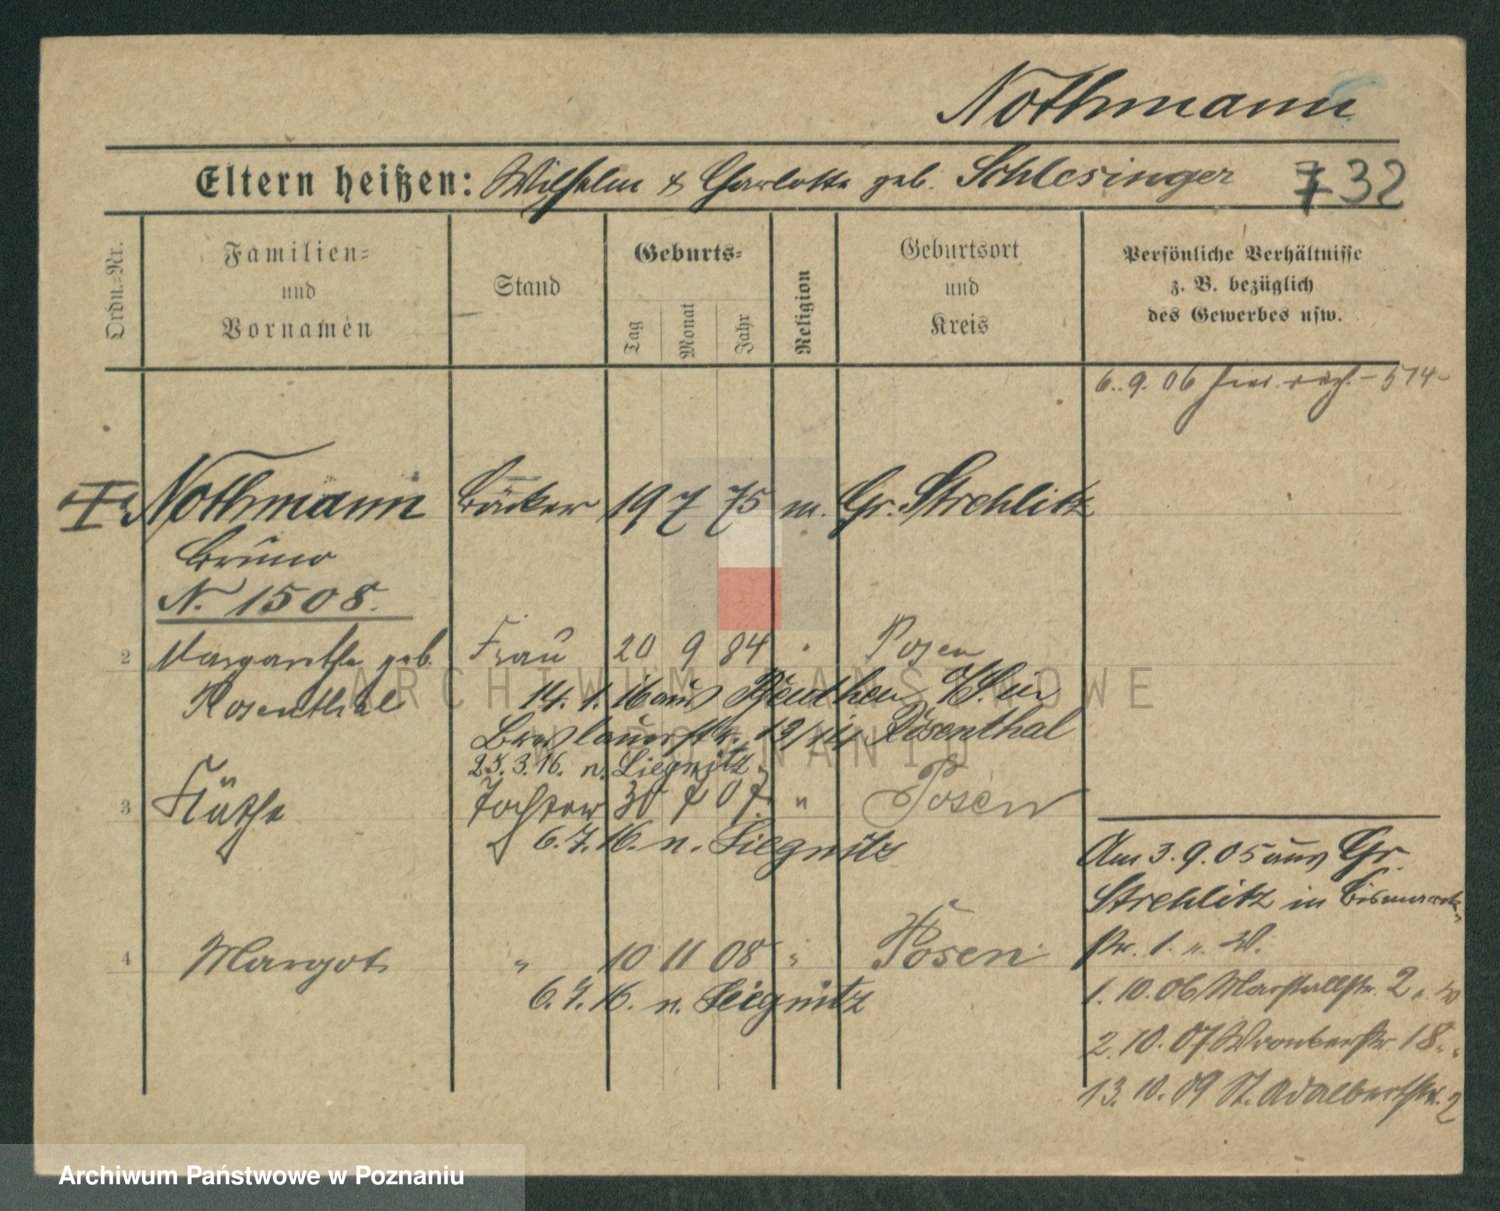 Nothmann
Eltern heißen: Wilhelm & Charlotte geb. Schlesinger 32
Ordn.-Nr.
Familien-
und
Vornamen
Stand
Geburts-
Tag
Monat
Jahr
Religion
Geburtsort
und
Kreis
Persönliche Verhältnisse
z. B. bezüglich
des Gewerbes usw.
6. 9. 06 - 514 -
Nothmann Bäcker 19 7 75 m. Gr. Strehlitz
Bruno
N. 1508.
2 Margarethe geb. Frau 20 9 84 " Posen
Rosenthal 14. 1. 16 aus Beuthen O/S in
Breslauerstr. 19/III Rosenthal
23. 3. 16. n. Liegnitz
3 Käthe Tochter 30 7 07. " Posen
6. 7. 16. n. Liegnitz
4 Margot " 10 11 08 " Posen
6. 7. 16. n. Liegnitz
Am 3. 9. 05 aus Gr.
Strehlitz in Bismarck-
str. 1.
1. 10. 06 Marstallstr. 2
2. 10. 07 Wronkerstr. 18
13. 10. 09 St. Adalbertstr. 2
ARCHIWUM PAŃSTWOWE
W POZNANIU
Archiwum Państwowe w Poznaniu